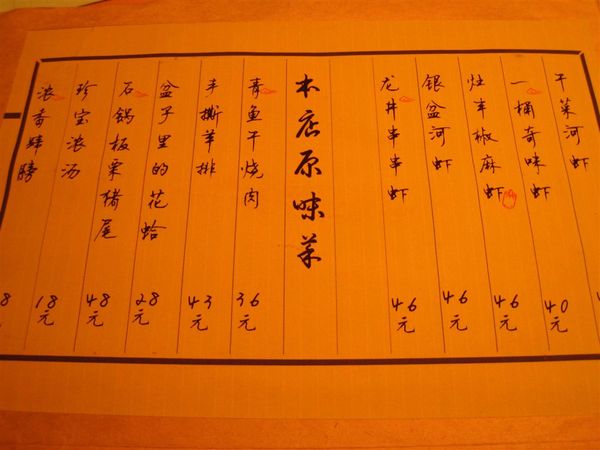 干菜河虾
一桶奇味虾 40元
灶丰椒麻虾 46元
银盆河虾 46元
龙井串串虾 46元
本店原味菜
青鱼干烧肉 36元
手撕羊排 43元
盆子里的花蛤 28元
石锅板栗猪尾 48元
珍宝浓汤 18元
浓香蹄膀 8